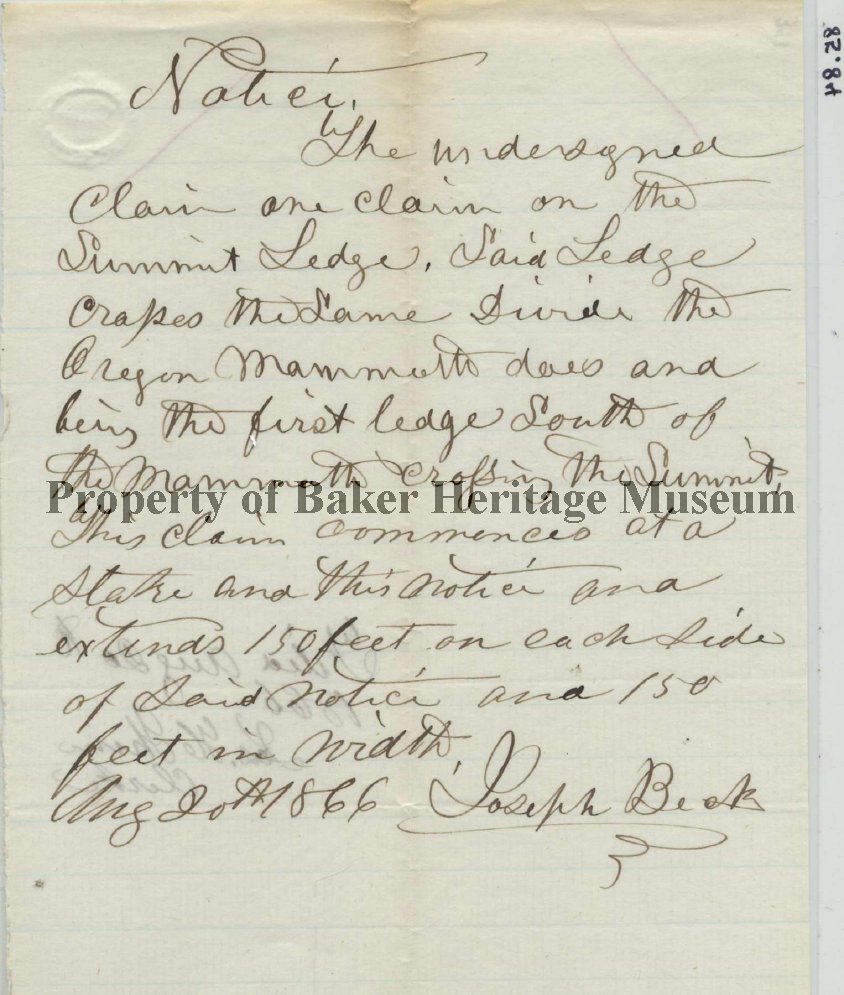 Notice.
The undersigned
Claim one claim on the
Summit Ledge. Said Ledge
crosses the Same Divide the
Oregon Mammoth does and
being the first ledge South of
the Mammoth crossing the Summit,
Property of Baker Heritage Museum
This claim commences at a
Stake and this Notice and
extends 150 feet on each side
of Said Notice and 150
feet in width,
Aug 20th 1866 Joseph Beck
82.84